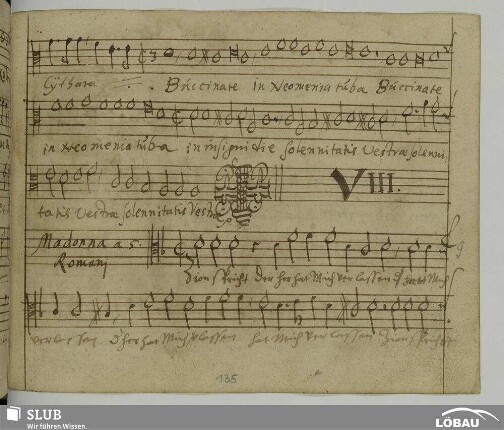 Cythara Buccinate in Neomenia tuba Buccinate
in Neomenia tuba in insigni die solennitatis vestræ solenni,
tatis vestræ solennitatis vestræ
VIII.
Madonna a 5.
Romanj
Zion spricht der her hat mich verlassen hatt mich
verlassen d her hat mich vlassen hat mich verlassen Zion spricht
135
SLUB
Wir führen Wissen.
LÖBAU